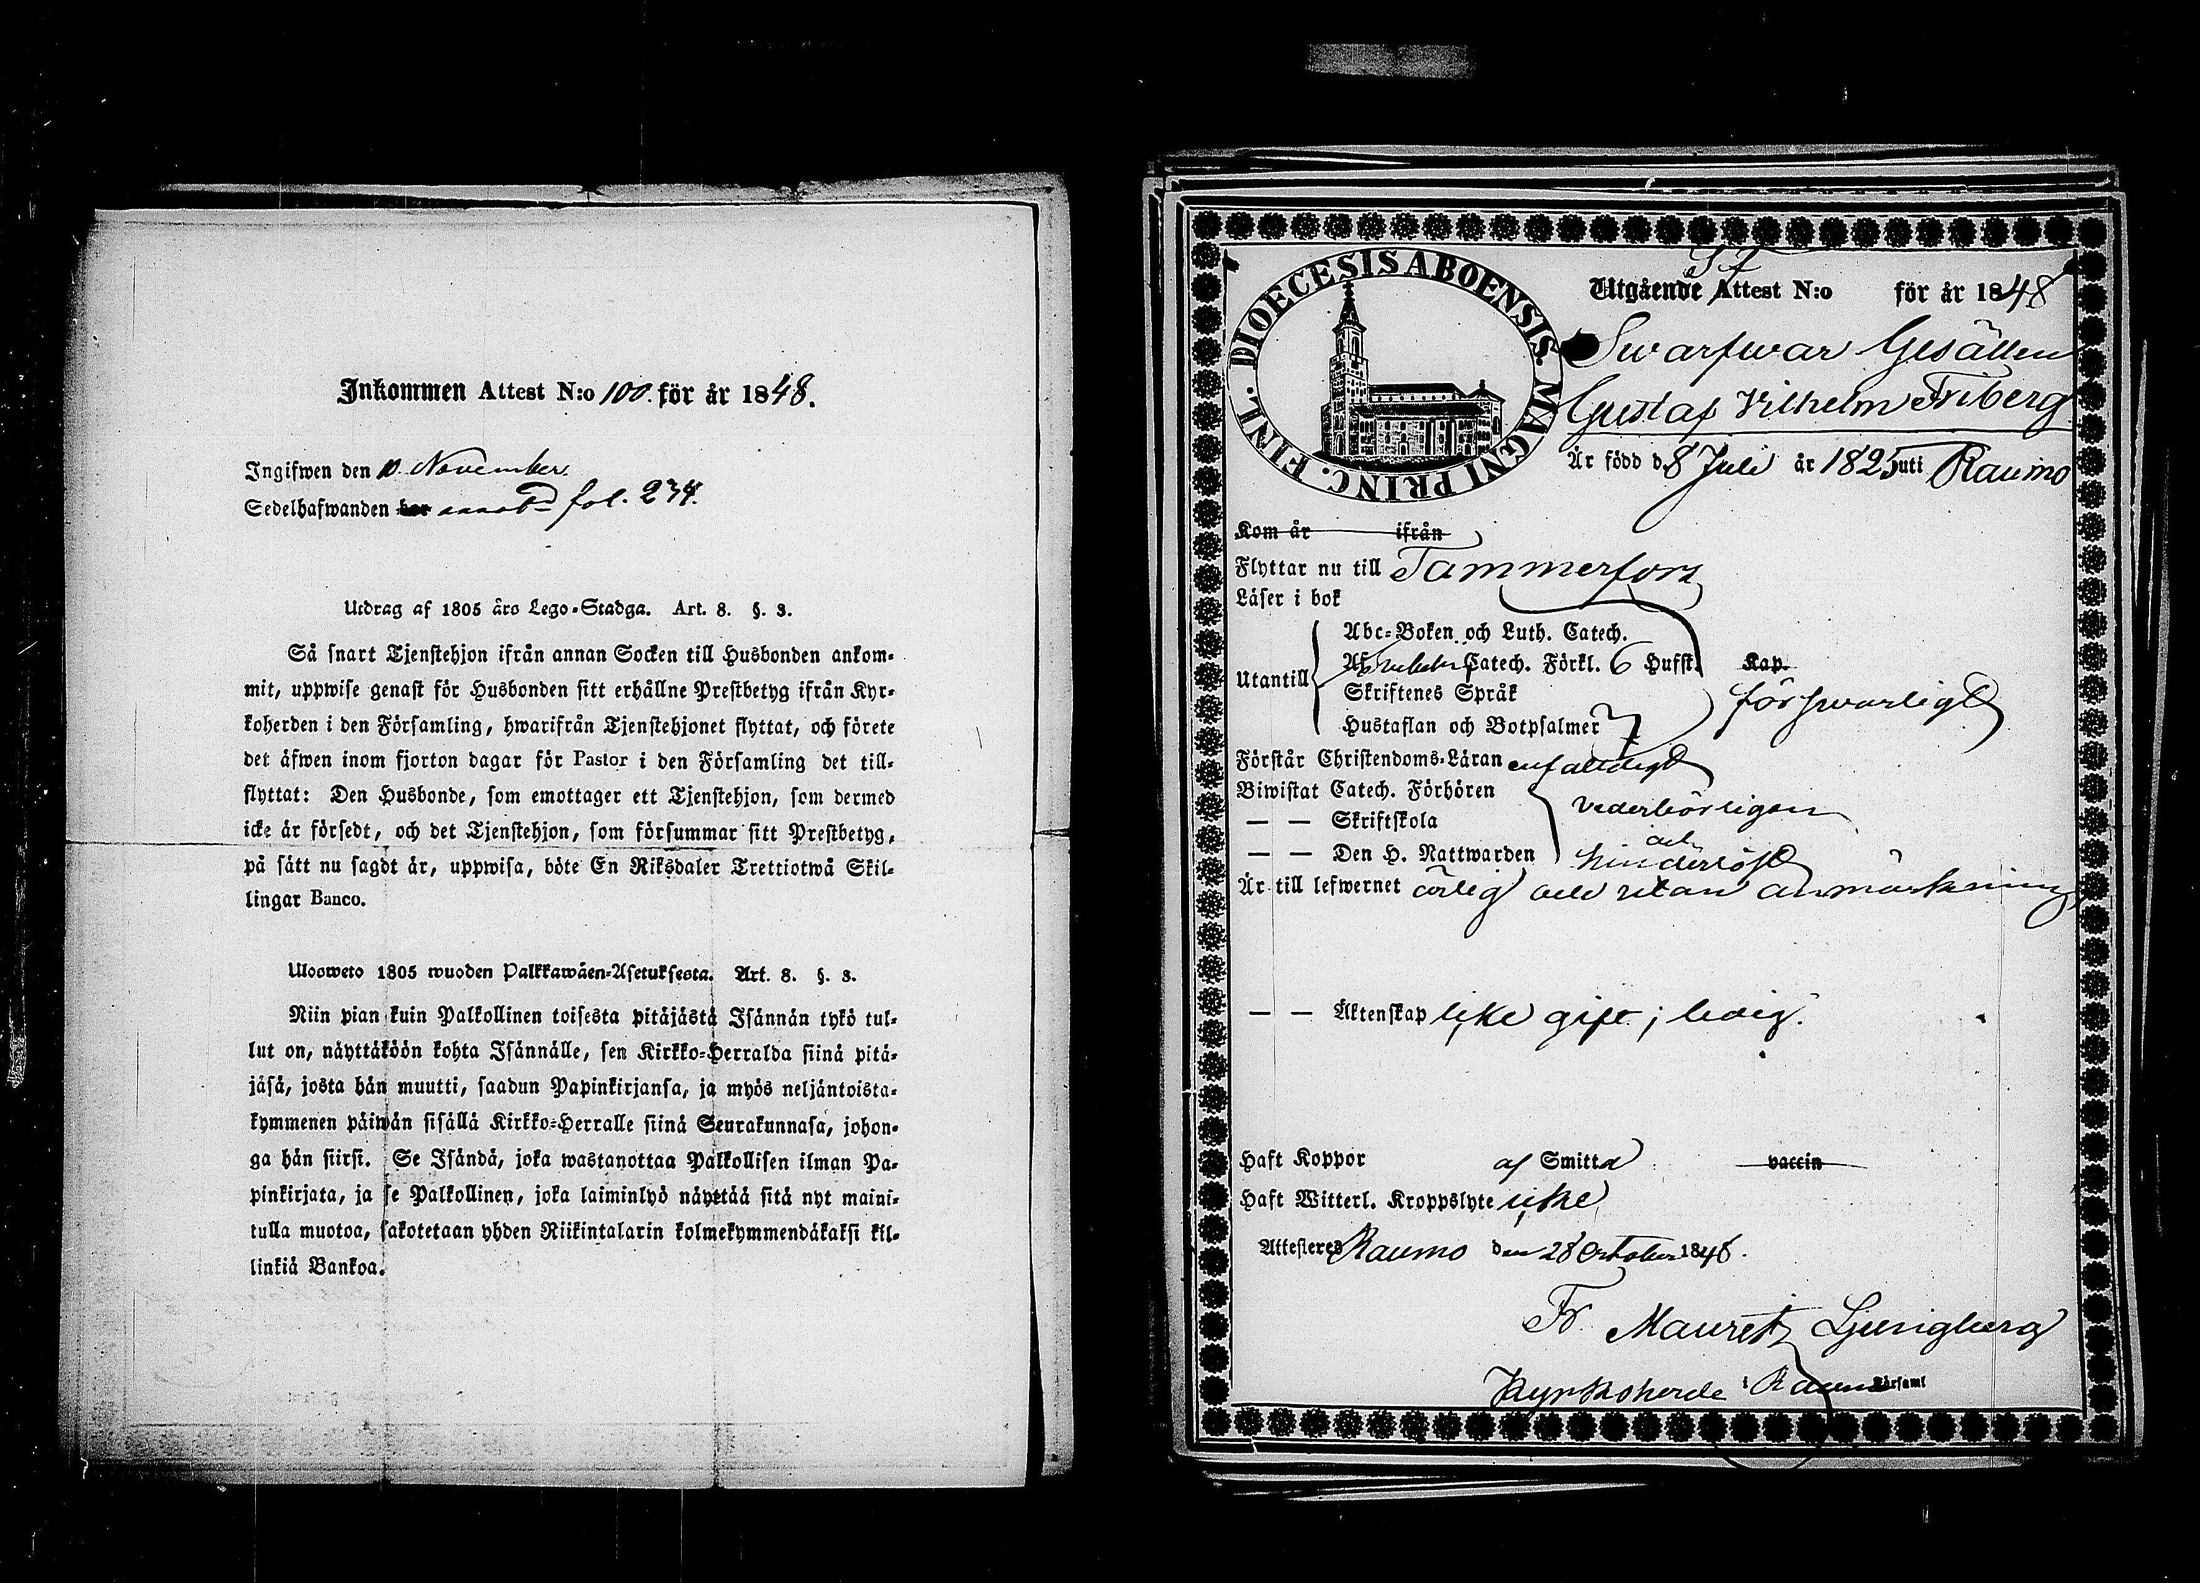 Inkommen Attest N:o 100. för år 1848.
Ingifwen den 10 November
Sedelhafwanden fol. 234.
Utdrag af 1805 års Lego-Stadga. Art. 8. §. 3.
Så snart Tjenstehjon ifrån annan Socken till Husbonden ankom-
mit, uppwise genast för Husbonden sitt erhållne Prestbetyg ifrån Kyr-
koherden i den Församling, hwarifrån Tjenstehjonet flyttat, och förete
det äfwen inom fjorton dagar för Pastor i den Församling det till-
flyttat: Den Husbonde, som emottager ett Tjenstehjon, som dermed
icke är försedt, och det Tjenstehjon, som försummar sitt Prestbetyg,
på sätt nu sagdt är, uppwisa, böte En Riksdaler Trettiotwå Skil-
lingar Banco.
Uloosweto 1805 wuoden Palkkawäen-Asetuksesta. Art. 8. §. 3.
Niin pian kuin Palkollinen toisesta pitäjästä Isännän tykö tul-
lut on, näyttäköön kohta Isännälle, sen Kirkko-Herralda siinä pitä-
jäsä, josta hän muutti, saadun Papinkirjansa, ja myös neljäntoista-
kymmenen päiwän sisällä Kirkko-Herralle siinä Seurakunnasa, johon-
ga hän siirsi. Se Isändä, joka wastanottaa Palkollisen ilman Pa-
pinkirjata, ja se Palkollinen, joka laiminlyö näyttää sitä nyt maini-
tulla muotoa, sakotetaan yhden Riikintalarin kolmekymmendäkaksi kil-
linkiä Bankoa.
DIOECESIS ABOENSIS. MAGNI PRINC. FINL.
Utgående Attest N:o för år 1848
Swarfwar Gesällen
Gustaf Vilhelm Friberg
Är född d. 8 Juli år 1825 uti Raumo
Kom år ifrån
Flyttar nu till Tammerfors
Läser i bok
Utantill
Abc-Boken och Luth. Catech.
Af Catech. Förkl. 6 Hufst. Kap.
Skriftenes Språk
försvarligt
Hustaflan och Botpsalmer
Förstår Christendoms-Läran enfaldigt
Biwistat Catech. Förhören
vederbörligen
— — Skriftskola
och
— — Den H. Nattwarden hinderlöst
Är till lefwernet ärlig och utan anmärkning
— — Äktenskap icke gift; ledig.
Haft Koppor af Smitta vaccin
Haft Witterl. Kroppslyte icke
Attesteres Raumo den 28 October 1848.
Fr. Mauretz Ljungberg
Kyrkoherde i Raumo Församl